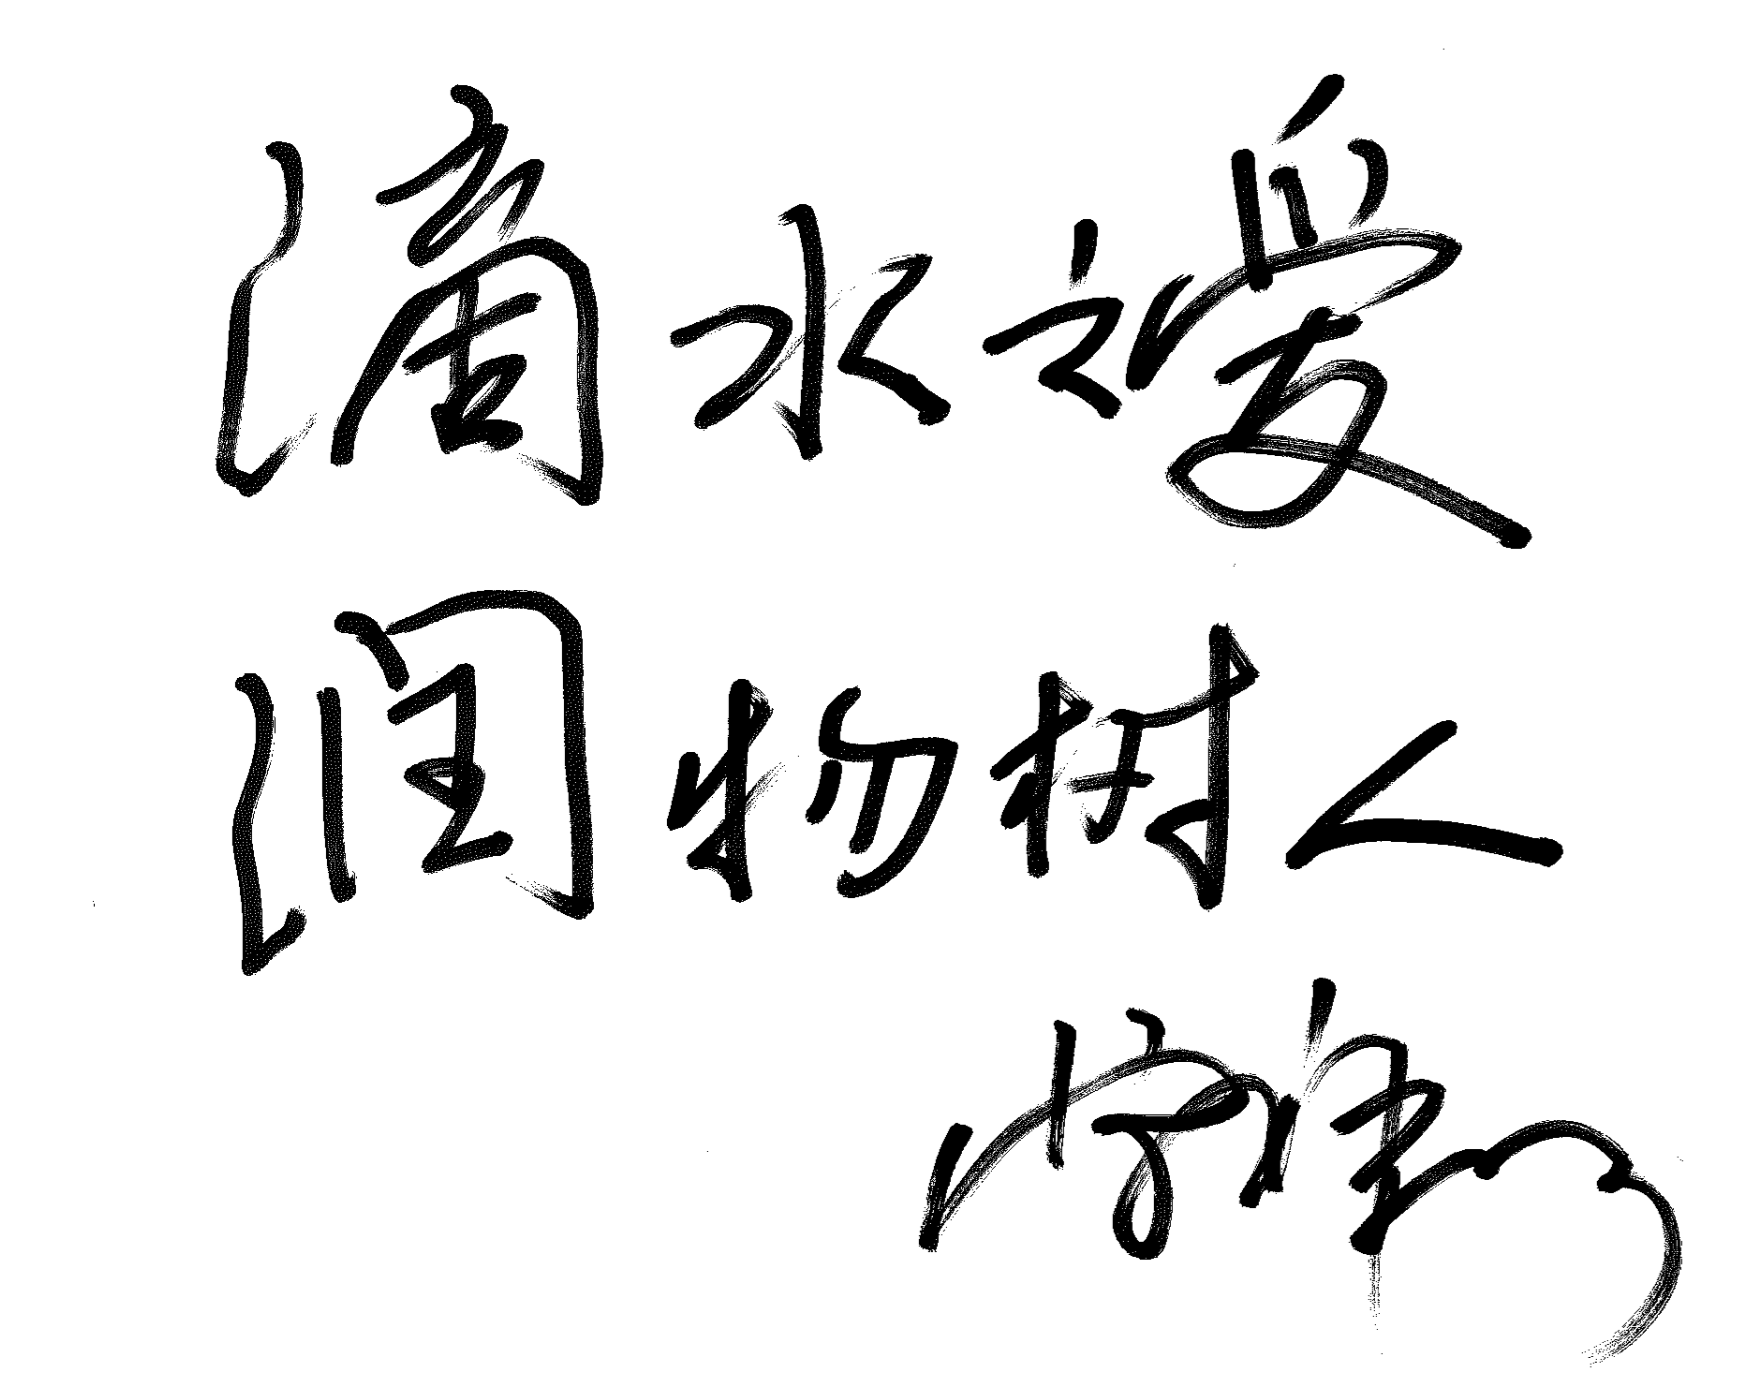 滴水之爱
润物树人